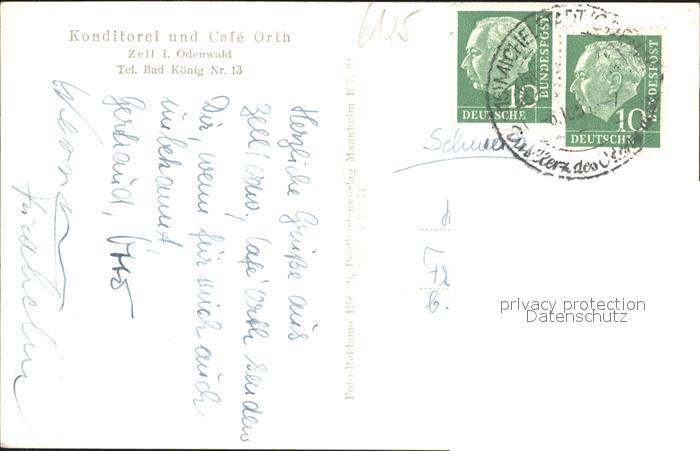 Konditorei und Café Orth
Zell i. Odenwald
Tel. Bad König Nr. 13
6125
10
DEUTSCHE
BUNDESPOST
10
DEUTSCHE
BUNDESPOST
Das Herz des
Herzliche Grüße aus
Zell/Odw., Café Orth senden
Dir, wenn für mich auch
unbekannt,
Gertraud, Otto
Friedhelm
Foto-Reklame Hirsch, Postkartenverlag Mannheim E 7, 21
privacy protection
Datenschutz